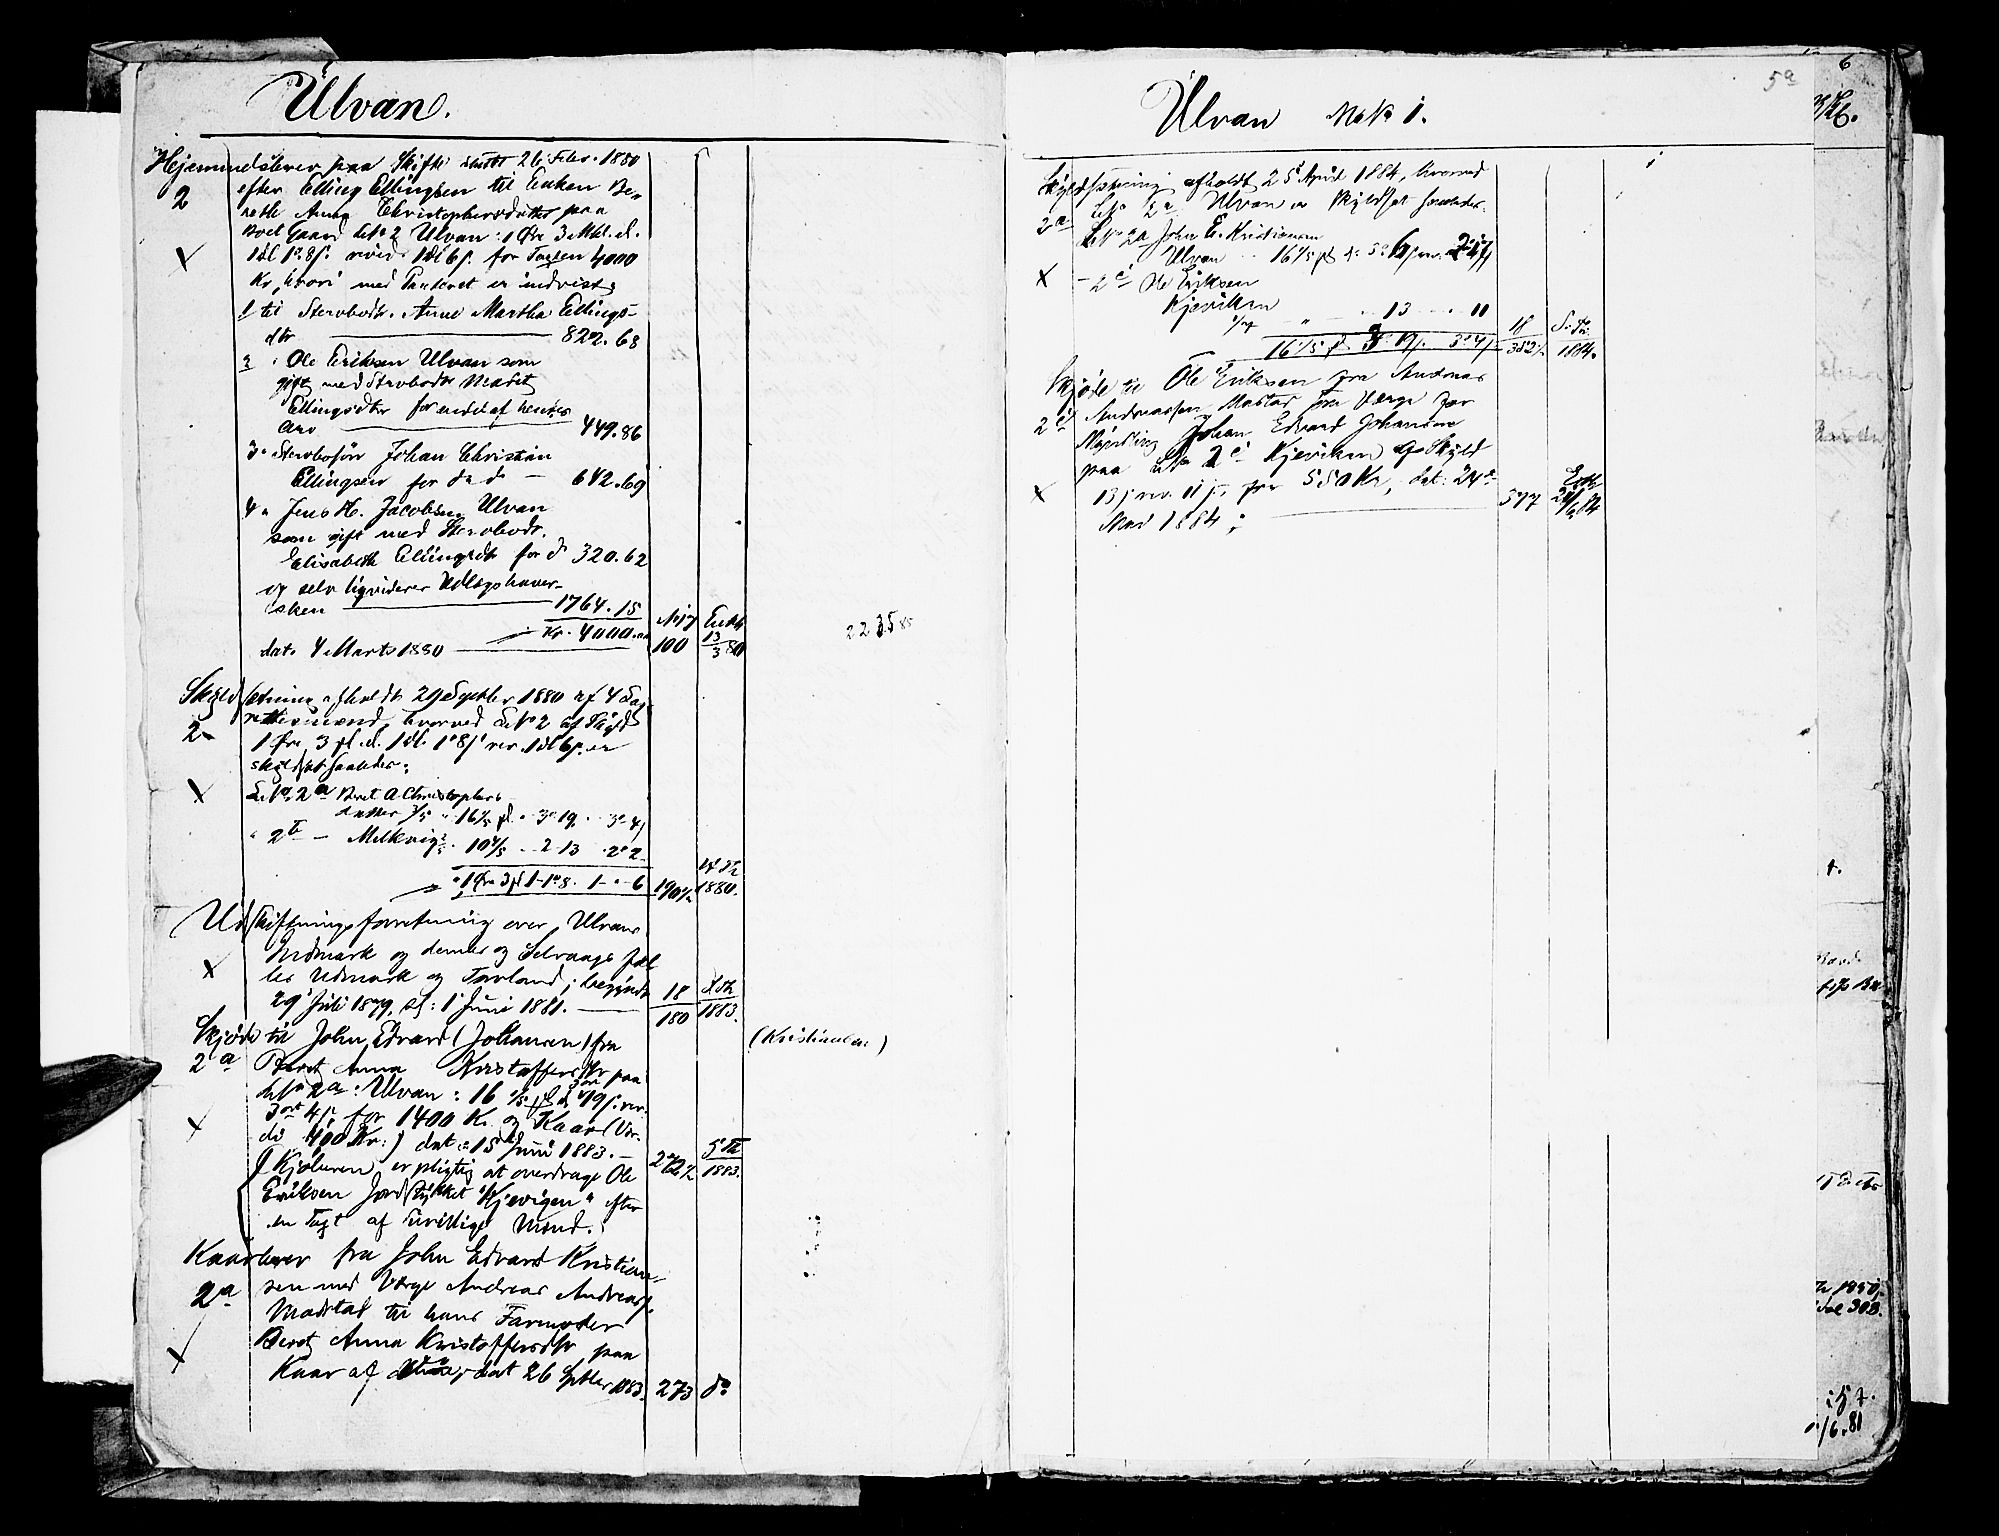 Ulvan.
Hjemmelsbrev paa Skifte sluttet 26 Febr. 1880
2 efter Elling Ellingsen til Enken Be-
reth Anna Christophersdatter paa
Boet Gaard LNo 2 Ulvan: 1 Øre 3 Mkl. d.
1dl 1o 8s. revid. 1dl 6s. for Taxten 4000
Kr, hvori med Panteret er indvist
1 til Stervbodtr. Anne Martha Ellings-
dtr 822.68
2 " Ole Eriksen Ulvan som
gift med Stervbodtr Marit
Ellingsdtr for endel af hendes
Arv 449.86
3 " Stervbosøn Johan Christian
Ellingsen for do do 642.69
4 " Jens H. Jacobsen Ulvan
som gift med Stervbodtr.
Elisabeth Ellingsdtr for do 320.62
og selv liqviderer Udlægshaver-
sken 1764.15
Kr. 4000.00
dat. 4 Marts 1880
No 17
100
Extr
13/3 80
2235 85
Skyldsætning afholdt 29 Septbr 1880 af 4 Lag-
2 rettesmænd, hvorved LNo 2 af Skyld
1 Øre 3 pd. d. 1dl. 1o 8s rev. 1dl 6s. er
skyldsat saaledes:
LNo. 2a Beret A Christophers-
datter 3/5 " 16 1/5 pd. " 3o 19. 3o 4s
" 2b — Melkvig 2/5 . 10 4/5 . . 2 13 . 2o 2
" 1 Øre 3 pd 1-1o 8. 1- " -6
190 1/2
1880.
Udskiftningsforretning over Ulvans
Indmark og dennes og Selvaags fæl-
les Udmark og Torvland, begyndt
29 Juli 1879, sl: 1 Juni 1881.
18
180
1883.
Skjøde til John Edvard (Johansen) fra
(Kristiansen)
2a Beret Anna Kristoffersdtr paa
LNo 2a Ulvan: 16 1/5 pd d. 3 ort 19 s. rev.
3 ort 4 s. for 1400 Kr. og Kaar (Vær-
di 400 Kr.) dat. 15 Juni 1883.
272 1/2
1883.
Kjøberen er pligtig at overdrage Ole
Eriksen Jordstykket "Kjevigen" efter
en Taxt af Uvillige Mænd.
Kaarbrev fra John Edvard Kristian-
2a sen med Værge Andreas Andreass.
Madstal til hans Farmoder
Beret Anna Kristoffersdtr paa
Kaar af dat 26 Septbr 1883.
273 do
5a
Ulvan MNo 1.
Skyldsætning afholdt 25 April 1884, hvorved
2a LNo 2a Ulvan er skyldsat saaledes:
LNo 2a John E. Kristiansen
Ulvan
- 2c Ole Eriksen
Kjeviken
" 13 11
16 1/5 pd 3o 19 s. 3o 4 s.
18
382 1/2
1884.
Skjøde til Ole Eriksen fra Andreas
2c Andreassen Mastad som Værge for
Myndling Johan Edvard Johansen
paa LNo 2c Kjeviken af Skyld
13 s rev. 11 s, for 550 Kr, dat: 24
Mai 1884
377
Extr
6